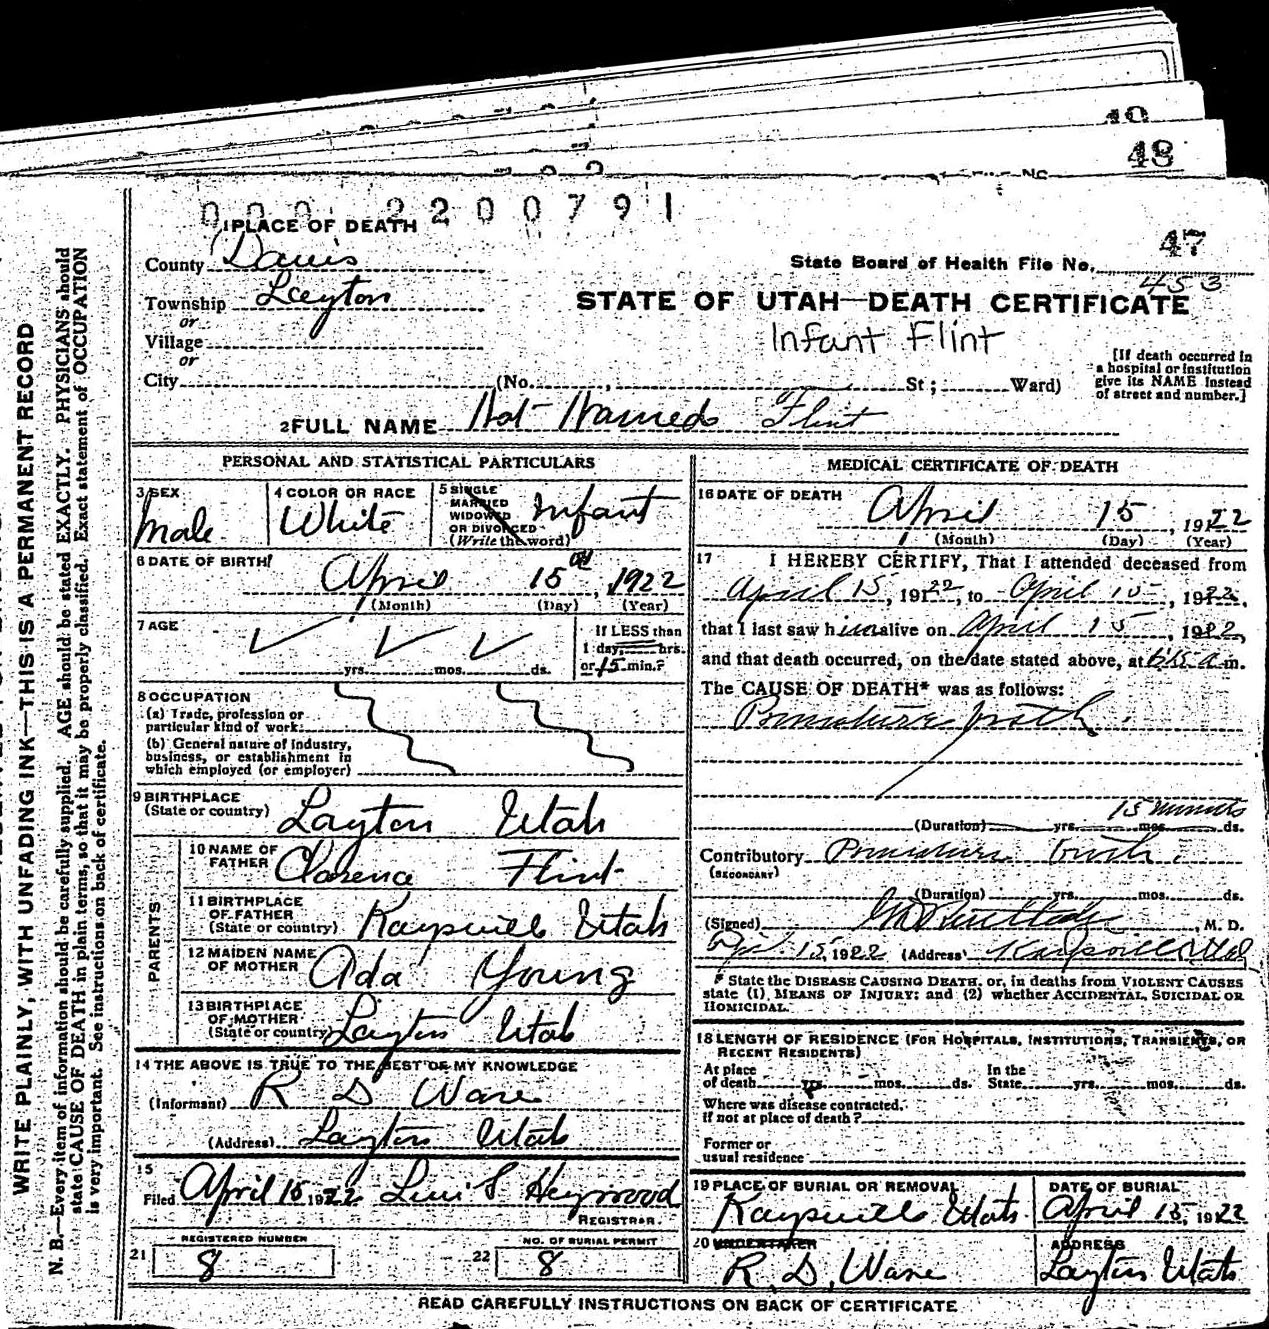 49
48
47
0 0 0 2 2 0 0 7 9 1
1 PLACE OF DEATH
County Davis
State Board of Health File No. 453
Township Layton
STATE OF UTAH—DEATH CERTIFICATE
or
Village
Infant Flint
or
City (No. , St ; Ward)
[If death occurred in
a hospital or institution
give its NAME instead
of street and number.]
2 FULL NAME Not Named Flint
PERSONAL AND STATISTICAL PARTICULARS
3 SEX
Male
4 COLOR OR RACE
White
5 SINGLE
MARRIED
WIDOWED
OR DIVORCED
(Write the word)
Infant
6 DATE OF BIRTH
April 15 1922
(Month) (Day) (Year)
7 AGE
yrs. mos. ds.
If LESS than
1 day, hrs.
or 15 min.?
8 OCCUPATION
(a) Trade, profession or
particular kind of work
(b) General nature of industry,
business, or establishment in
which employed (or employer)
9 BIRTHPLACE
(State or country) Layton Utah
PARENTS
10 NAME OF
FATHER Clarence Flint
11 BIRTHPLACE
OF FATHER
(State or country) Kaysville Utah
12 MAIDEN NAME
OF MOTHER Ada Young
13 BIRTHPLACE
OF MOTHER
(State or country) Layton Utah
14 THE ABOVE IS TRUE TO THE BEST OF MY KNOWLEDGE
(Informant) R D Ware
(Address) Layton Utah
15
Filed April 15 1922 Levi S Heywood
REGISTRAR.
21
REGISTERED NUMBER
8
22
NO. OF BURIAL PERMIT
8
MEDICAL CERTIFICATE OF DEATH
16 DATE OF DEATH
April 15, 1922
(Month) (Day) (Year)
17 I HEREBY CERTIFY, That I attended deceased from
April 15, 1922, to April 15, 1922,
that I last saw him alive on April 15, 1922,
and that death occurred, on the date stated above, at a m.
The CAUSE OF DEATH* was as follows:
Premature birth
15 minutes
(Duration) yrs. mos. ds.
Contributory Premature birth.
(SECONDARY)
(Duration) yrs. mos. ds.
(Signed) , M. D.
Apr. 15, 1922 (Address) Kaysville Utah
* State the DISEASE CAUSING DEATH, or, in deaths from VIOLENT CAUSES
state (1) MEANS OF INJURY; and (2) whether ACCIDENTAL, SUICIDAL OR
HOMICIDAL.
18 LENGTH OF RESIDENCE (FOR HOSPITALS, INSTITUTIONS, TRANSIENTS, OR
RECENT RESIDENTS)
At place In the
of death yrs. mos. ds. State yrs. mos. ds.
Where was disease contracted,
if not at place of death?
Former or
usual residence
19 PLACE OF BURIAL OR REMOVAL
Kaysville Utah
DATE OF BURIAL
April 15, 1922
20 UNDERTAKER
R. D. Ware
ADDRESS
Layton Utah
READ CAREFULLY INSTRUCTIONS ON BACK OF CERTIFICATE
WRITE PLAINLY, WITH UNFADING INK—THIS IS A PERMANENT RECORD
N. B.—Every item of information should be carefully supplied. AGE should be stated EXACTLY. PHYSICIANS should
state CAUSE OF DEATH in plain terms, so that it may be properly classified. Exact statement of OCCUPATION
is very important. See instructions on back of certificate.